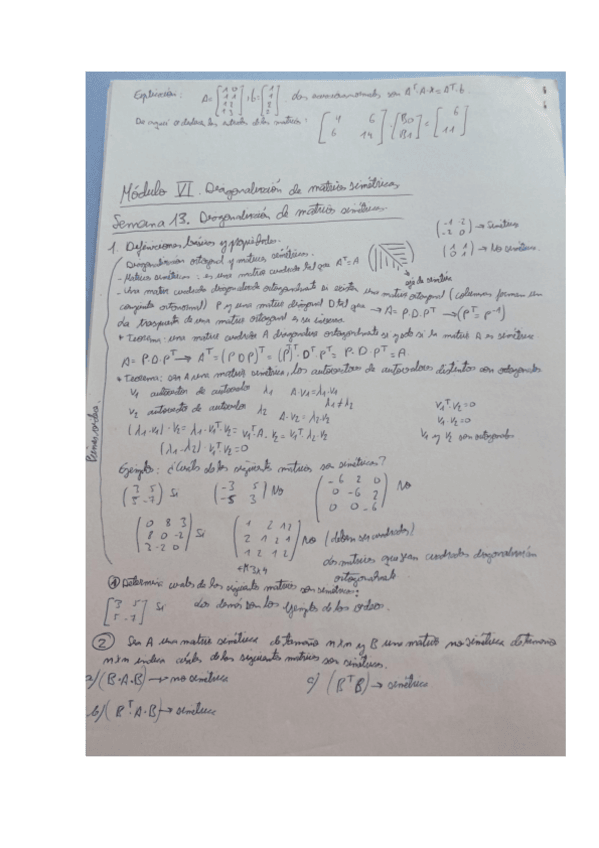 Explicación: A = [1 0; 1 1; 1 2; 1 3] b = [1; 1; 2; 2] las ecuaciones normales son AᵀA·x = Aᵀ·b
De aquí se deduce las de las matrices: [4 6; 6 14]·[B0; B1] = [6; 11]
Módulo VI. Diagonalización de matrices simétricas
Semana 13. Diagonalización de matrices simétricas
1. Definiciones básicas y propiedades.
→ simétrica
→ No simétrica
Diagonalización ortogonal y matrices simétricas.
- Matrices simétricas = es una matriz cuadrada tal que Aᵀ=A
eje de simetría
- Una matriz cuadrada diagonaliza ortogonalmente si existe una matriz ortogonal (columnas forman un
conjunto ortonormal) P y una matriz diagonal D tal que → A = P.D.Pᵀ → (Pᵀ = P⁻¹)
La traspuesta de una matriz ortogonal es su inversa.
* Teorema: una matriz cuadrada A diagonaliza ortogonalmente si y solo si la matriz A es simétrica
A = P.D.Pᵀ → Aᵀ = (P D Pᵀ)ᵀ = (Pᵀ)ᵀ.Dᵀ.Pᵀ = P.D.Pᵀ = A
* Teorema: sea A una matriz simétrica, los autovectores de autovalores distintos son ortogonales
V₁ autovector de autovalor λ₁ A.v₁=λ₁.v₁
V₂ autovector de autovalor λ₂ A.v₂=λ₂.v₂ λ₁≠λ₂
V₁ᵀ.V₂=0
V₁.V₂=0
V₁ y V₂ son ortogonales
(λ₁.v₁).v₂ = λ₁.v₁ᵀ.v₂ = v₁ᵀ.A.v₂ = v₁ᵀ.λ₂.v₂
(λ₁-λ₂).v₁ᵀ.v₂=0
Ejemplo: ¿Cuáles de las siguientes matrices son simétricas?
(3 5; 5 -7) Si (-3 5; -5 3) No (-6 2 0; 0 -6 2; 0 0 -6) No
(0 8 3; 8 0 -2; 3 -2 0) Si (1 2 1 2; 2 1 2 1; 1 2 1 2) No (deben ser cuadradas)
3x4
las matrices que sean cuadradas diagonalizarán
ortogonalmente
① Determina cuales de las siguientes matrices son simétricas:
[3 5; 5 -7] Si las demás son los ejemplos de los
② Sea A una matriz simétrica de tamaño nxn y B una matriz no simétrica de tamaño
nxn indica cuáles de las siguientes matrices son simétricas.
a) (B.A.B) → no simétrica c) (BᵀB) → simétrica
b) (Bᵀ.A.B) → simétrica